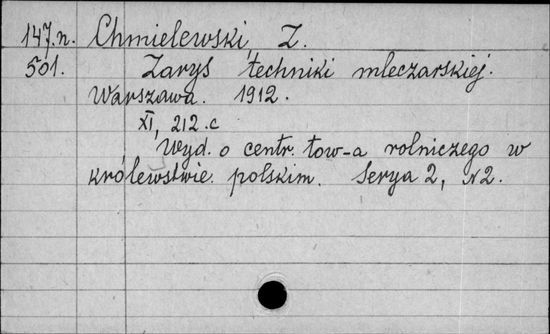 147.n. Chmielewski, Z.
501. Zarys techniki mleczarskiej.
Warszawa. 1912.
XI, 212.c
Wyd. o centr. tow-a rolniczego w
królewstwie polskim. Serya 2, N2.